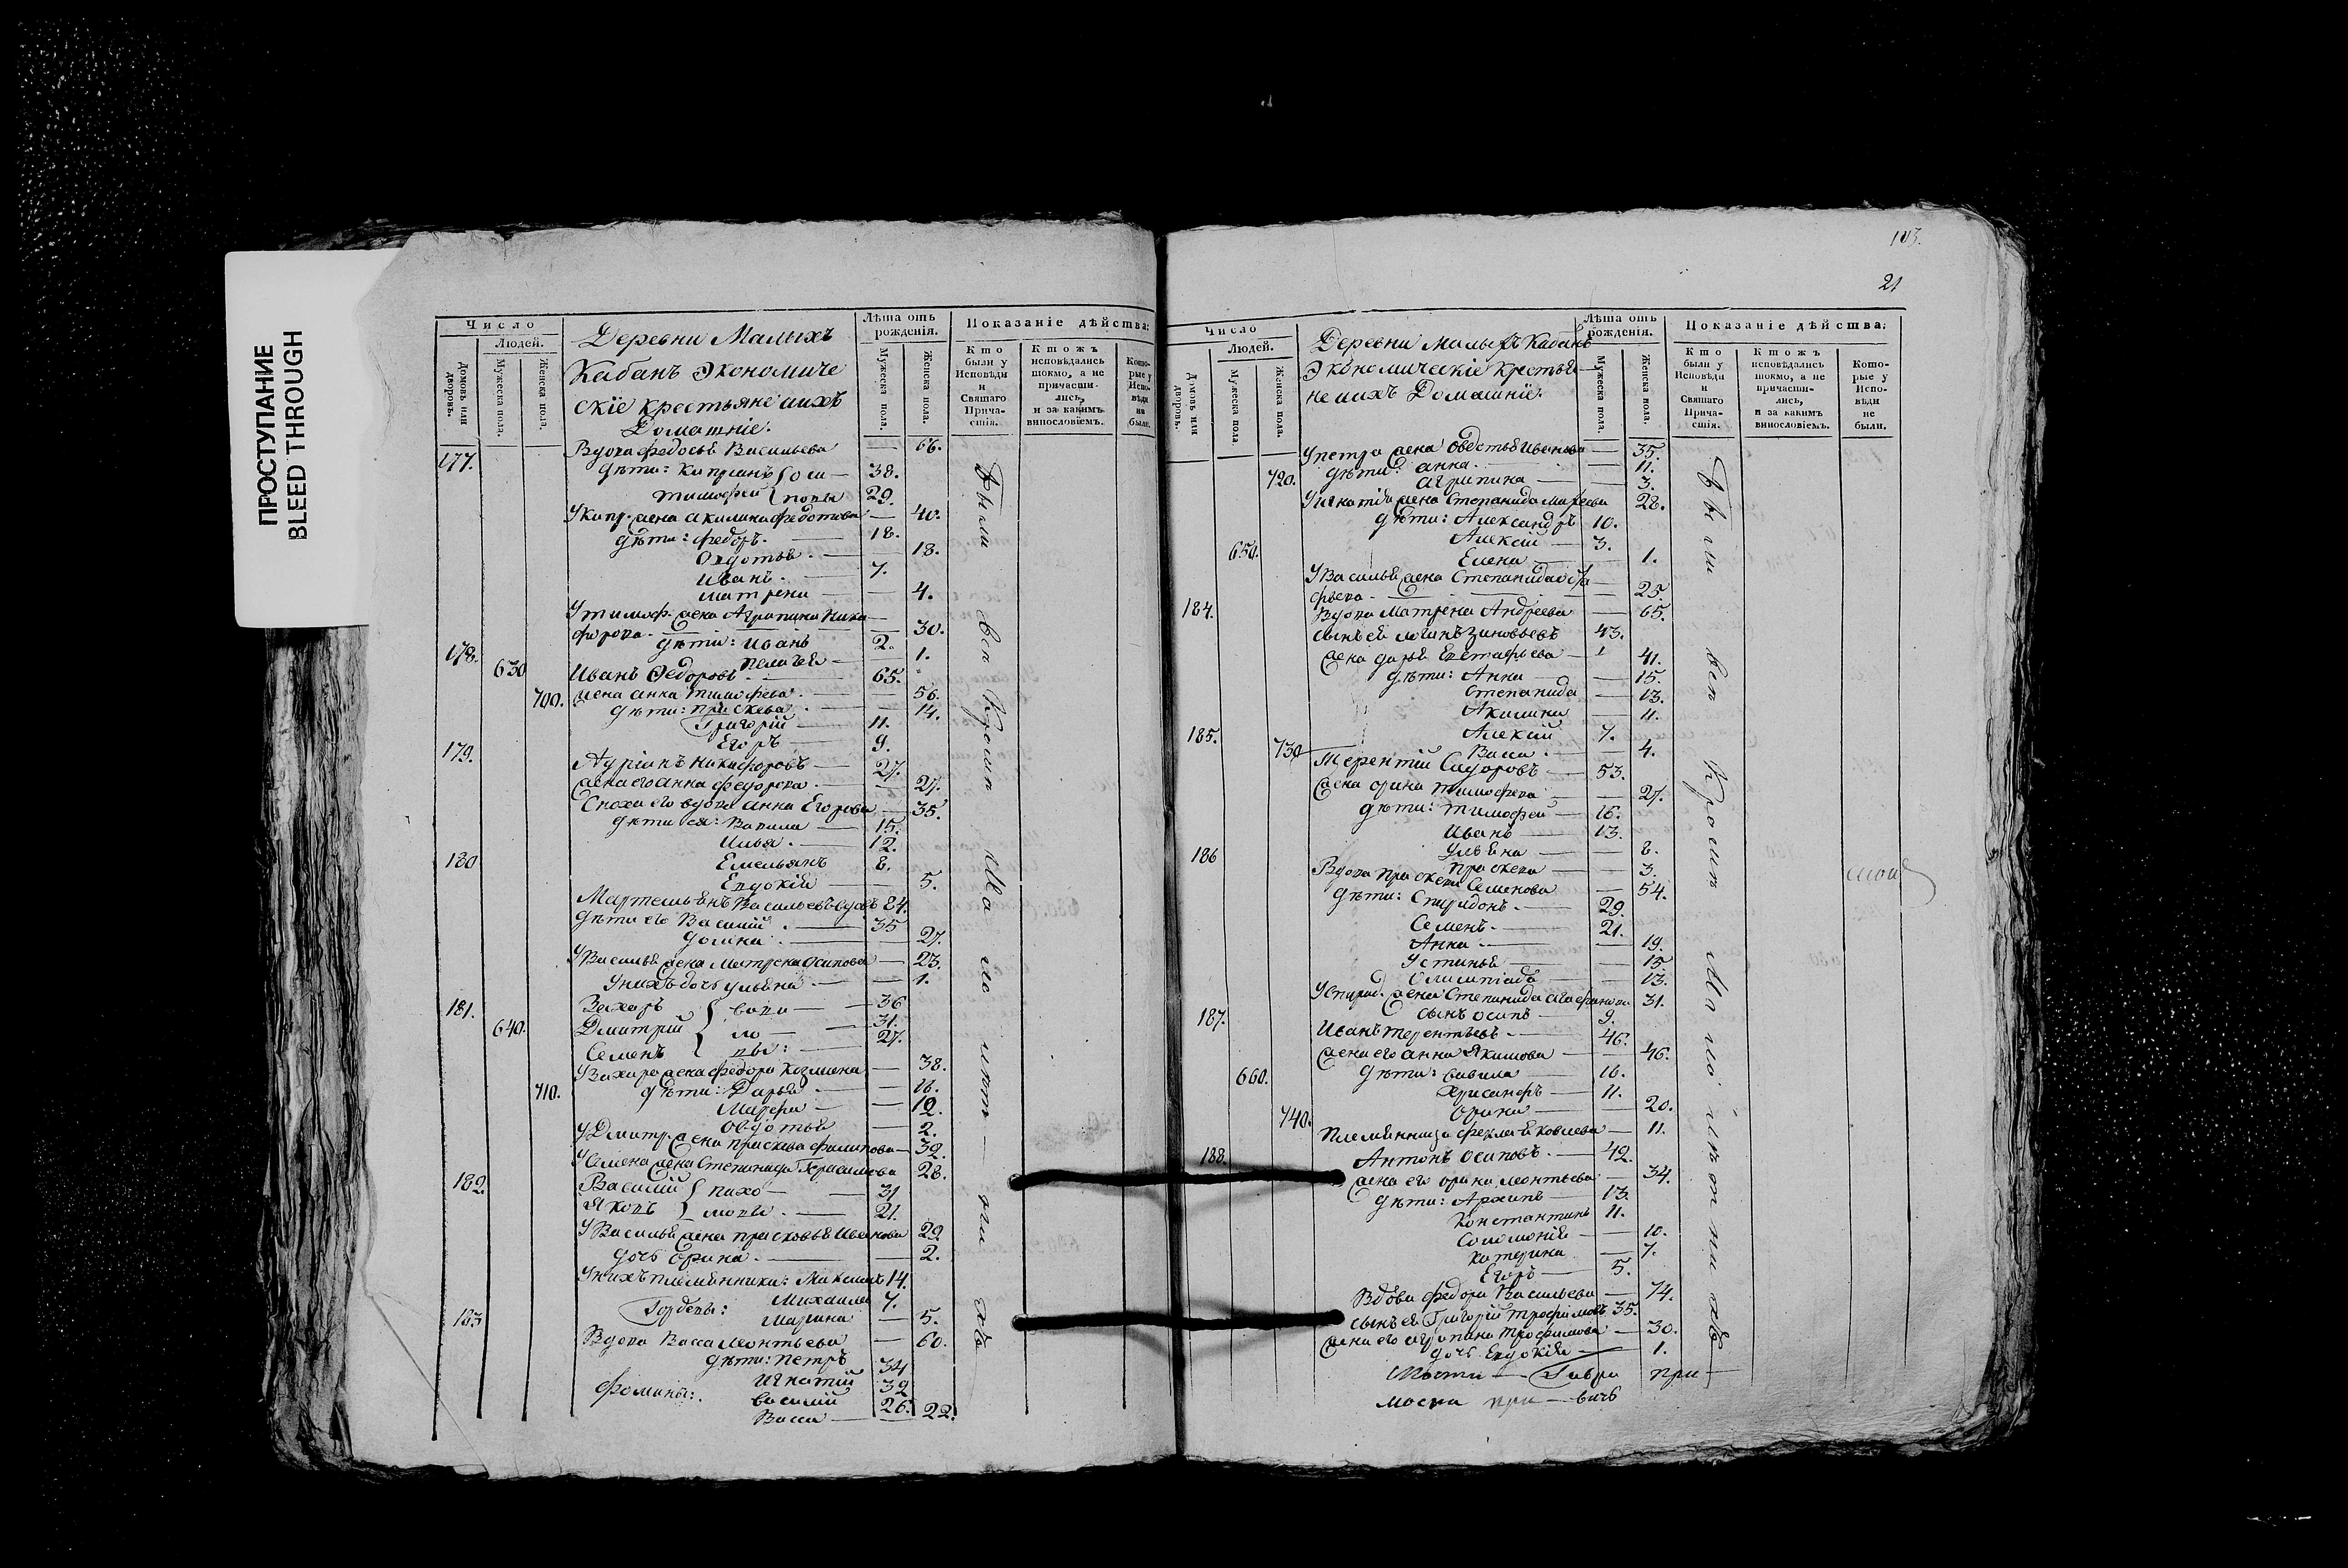 ПРОСТУПАНИЕ
BLEED THROUGH
Число
Людей.
Домовъ или дворовъ.
Мужеска пола.
Женска пола.
Деревни Малыхъ
Кабанъ Экономиче
скіе крестьяне ихъ
Домашніе.
Лѣта отъ рожденія.
Мужеска пола.
Женска пола.
Показаніе дѣйства:
Кто были у Исповѣди и Святаго Прича-стія.
Ктожъ исповѣдались токмо, а не причасти-лись, и за какимъ винословіемъ.
Кото-рые у Испо-вѣди не были.
177. Вдова Федосья Васильева — 66.
дѣти: Купріанъ 38.
Тимофей 29.
У Купр. жена Акилина Федотова — 40.
дѣти: Федоръ. — 18.
Овдотья. — 18.
Иванъ. — 7.
Матрена — 4.
У Тимоф. жена Агрипина Ники
форова. — 30.
дѣти: Иванъ 2.
Пелагея — 1.
178. 630 Иванъ Федоровъ. — 65.
700. жена Анна Тимофева. — 56.
дѣти: Прискева. — 14.
Григорій — 11.
Егоръ — 9.
179. Адріанъ Никифоровъ — 27.
жена его Анна Федорова. — 27.
Сноха его вдова Анна Егорова — 35.
дѣти ея: Вавила — 15.
Илья. — 12.
Емельянъ 8.
Евдокія — 5.
180 Мартемьянъ Васильевъ вдовъ 84.
дѣти его Василій. — 35
Домна. — 27.
У Василья жена Матрена Осипова — 23.
У нихъ дочь Ульяна. — 1.
181. Захаръ 36
640. Дмитрій 31.
Семенъ 27.
У Захара жена Федора Козмина — 38.
710. дѣти: Дарья — 16.
Марфа — 12.
Овдотья — 2.
У Дмитр. жена Прискева Филипова — 32.
У Семена жена Степанида Герасимова 28.
182. Василій 31
Яковъ 21.
У Василья жена Прасковья Иванова 29.
дочь Орина. — 2.
У нихъ племянники: Максимъ 14.
Михаила 7.
Гордевы: Марина — 5.
183 Вдова Васса Леонтьева — 60.
дѣти: Петръ 34
Игнатій 32
Фомины: Василій 26.
Васса — 22.
Были
вси
кроме
малолѣт
нихъ
103.
21
Число
Людей.
Домовъ или дворовъ.
Мужеска пола.
Женска пола.
Деревни Малыхъ Кабанъ
Экономическіе крестья
не ихъ Домашніе.
Лѣта отъ рожденія.
Мужеска пола.
Женска пола.
Показаніе дѣйства:
Кто были у Исповѣди и Святаго Прича-стія.
Ктожъ исповѣдались токмо, а не причасти-лись, и за какимъ винословіемъ.
Кото-рые у Испо-вѣди не были.
У Петра жена Овдотья Иванова — 35.
дѣти: Анна. — 11.
720. Агрипина — 3.
У Игнатія жена Степанида Макеева 28.
дѣти: Александръ 10.
Алексій — 3.
650. Елена — 1.
У Василья жена Степанида
— 25.
184. Вдова Матрена Андреева — 65.
сынъ ея Логинъ Зиновьевъ 43.
жена Дарья Евстафьева — 41.
дѣти: Анна — 15.
Степанида — 13.
Акилина — 11.
Алексій 7.
730 Васса. — 4.
185. Терентій Сидоровъ — 53.
жена Орина Тимофева — 27.
дѣти: Тимофей — 16.
Иванъ — 13.
Ульяна — 8.
Прискева — 3.
186 Вдова Прискева Семенова — 54.
дѣти: Спиридонъ. — 29.
Семенъ. — 21.
Анна. — 19.
Устинья — 15
Олимпіада — 13.
У Спирид. жена Степанида 31.
сынъ Осипъ — 9.
187. Иванъ Терентьевъ. — 46.
жена его Анна Якимова — 46.
660. дѣти: Савила — 16.
Хрисанфъ — 11.
740. Орина — 20.
Племянница Фекла Яковлева — 11.
188. Антонъ Осиповъ. — 42.
жена его Орина Леонтьева — 34.
дѣти: Архипъ — 13.
Константинъ 11.
Соломонія — 10.
Катерина — 7.
Егоръ — 5.
Вдова Федора Васильева — 74.
сынъ ея Григорій Трофимовъ 35.
жена его Агрипина Трофимова — 30.
дочь Евдокія — 1.
Были
вси
кроме
малолѣтнихъ